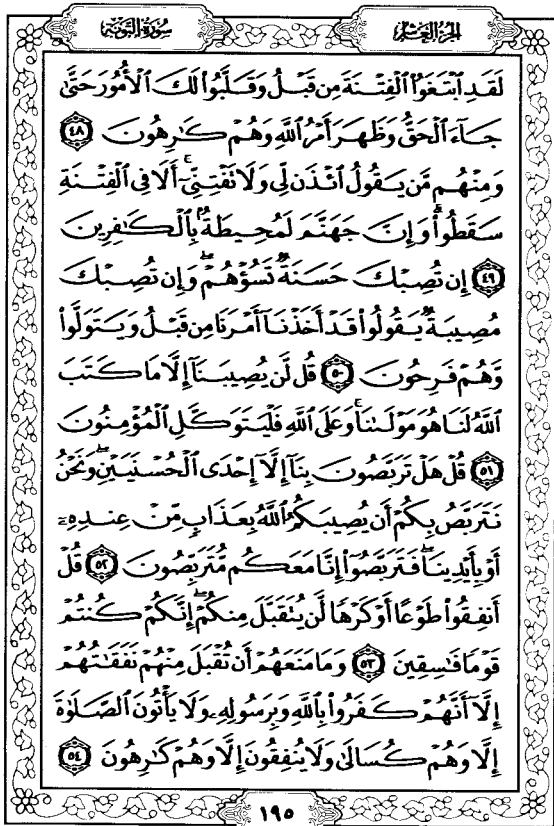 سورة التوبة
الجزء العاشر
لَقَدِ ٱبْتَغَوُا۟ ٱلْفِتْنَةَ مِن قَبْلُ وَقَلَّبُوا۟ لَكَ ٱلْأُمُورَ حَتَّىٰ
جَآءَ ٱلْحَقُّ وَظَهَرَ أَمْرُ ٱللَّهِ وَهُمْ كَٰرِهُونَ ٤٨
وَمِنْهُم مَّن يَقُولُ ٱئْذَن لِّى وَلَا تَفْتِنِّىٓ ۚ أَلَا فِى ٱلْفِتْنَةِ
سَقَطُوا۟ ۗ وَإِنَّ جَهَنَّمَ لَمُحِيطَةٌۢ بِٱلْكَٰفِرِينَ
٤٩ إِن تُصِبْكَ حَسَنَةٌ تَسُؤْهُمْ ۖ وَإِن تُصِبْكَ
مُصِيبَةٌ يَقُولُوا۟ قَدْ أَخَذْنَآ أَمْرَنَا مِن قَبْلُ وَيَتَوَلَّوا۟
وَّهُمْ فَرِحُونَ ٥٠ قُل لَّن يُصِيبَنَآ إِلَّا مَا كَتَبَ
ٱللَّهُ لَنَا هُوَ مَوْلَىٰنَا ۚ وَعَلَى ٱللَّهِ فَلْيَتَوَكَّلِ ٱلْمُؤْمِنُونَ
٥١ قُلْ هَلْ تَرَبَّصُونَ بِنَآ إِلَّآ إِحْدَى ٱلْحُسْنَيَيْنِ ۖ وَنَحْنُ
نَتَرَبَّصُ بِكُمْ أَن يُصِيبَكُمُ ٱللَّهُ بِعَذَابٍ مِّنْ عِندِهِۦٓ
أَوْ بِأَيْدِينَا ۖ فَتَرَبَّصُوٓا۟ إِنَّا مَعَكُم مُّتَرَبِّصُونَ ٥٢ قُلْ
أَنفِقُوا۟ طَوْعًا أَوْ كَرْهًا لَّن يُتَقَبَّلَ مِنكُمْ ۖ إِنَّكُمْ كُنتُمْ
قَوْمًا فَٰسِقِينَ ٥٣ وَمَا مَنَعَهُمْ أَن تُقْبَلَ مِنْهُمْ نَفَقَٰتُهُمْ
إِلَّآ أَنَّهُمْ كَفَرُوا۟ بِٱللَّهِ وَبِرَسُولِهِۦ وَلَا يَأْتُونَ ٱلصَّلَوٰةَ
إِلَّا وَهُمْ كُسَالَىٰ وَلَا يُنفِقُونَ إِلَّا وَهُمْ كَٰرِهُونَ ٥٤
١٩٥